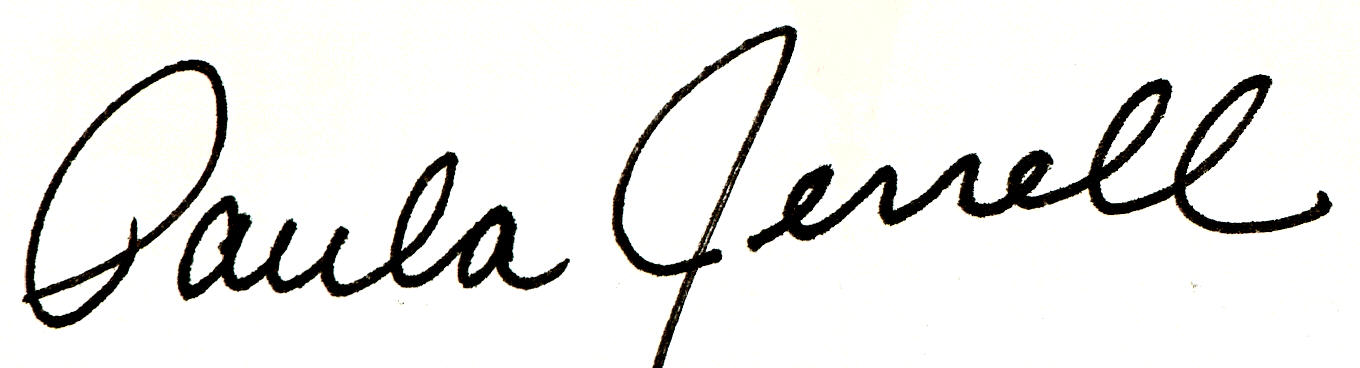 Paula Jerrell